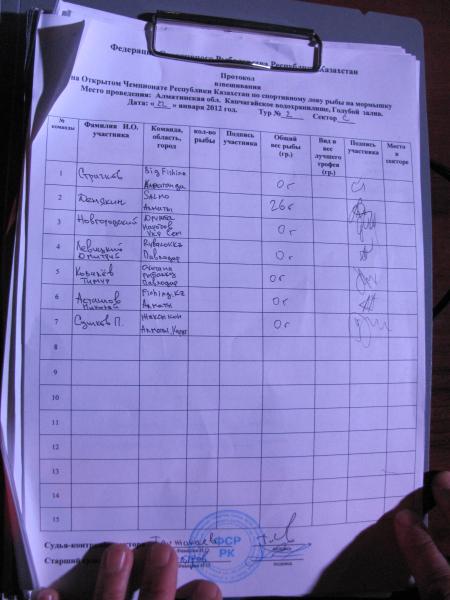 Федерация Рыболовства Республики Казахстан
Протокол
взвешивания
на Открытом Чемпионате Республики Казахстан по спортивному лову рыбы на мормышку
Место проведения: Алматинская обл. Капчагайское водохранилище, Голубой залив.
Дата: « 22 » января 2012 год. Тур № 2 Сектор С
№ команды Фамилия И.О. участника Команда, область, город кол-во рыбы Подпись участника Общий вес рыбы (гр.) Вид и вес лучшего трофея (гр.) Подпись участника Место в секторе
1 Страчков Big Fishing Караганда 0 г
2 Денякин Salmo Алматы 26 г
3 Новгородский Дружба 0 г
4 Левицкий Дмитрий Рыбалка Павлодар 0 г
5 Ковалёв Тимур Охота рыбалка Павлодар 0 г
6 Асташов Николай Fishing.kz Алматы 0 г
7 Сушков П. Жекен кон Алматы 0 г
8
9
10
11
12
13
14
15
Судья-контролёр сектора
Фамилия И.О. подпись
Старший
Фамилия И.О. подпись
ФСР
РК